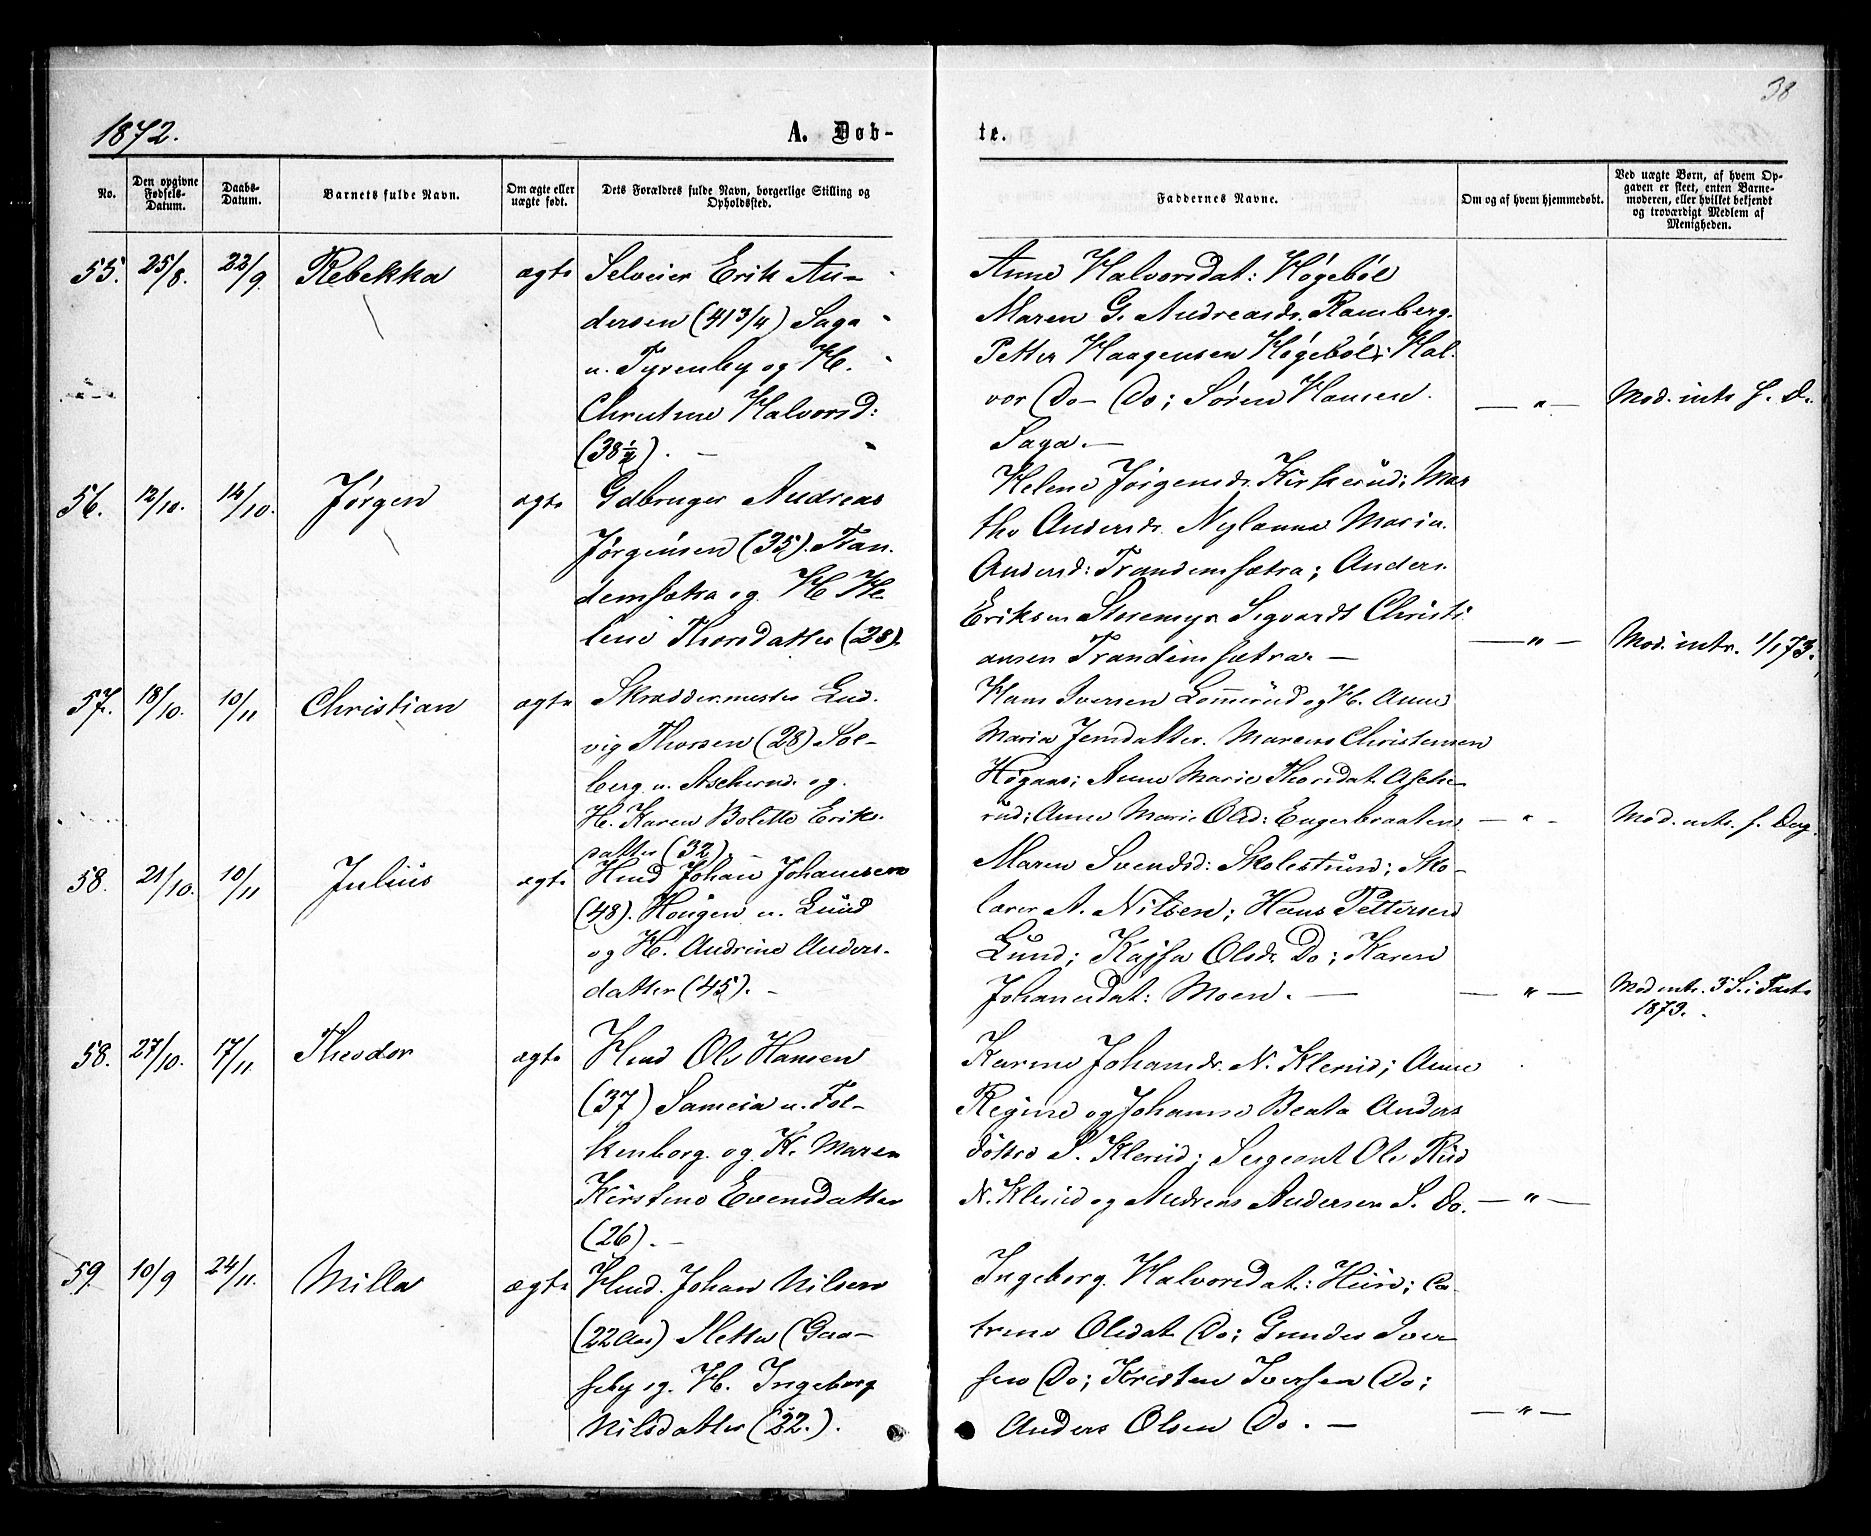 38
1872.
A. Døb-
te.
No.
Den opgivne Fødsels-Datum.
Daabs-Datum.
Barnets fulde Navn.
Om ægte eller uægte født.
Dets Forældres fulde Navn, borgerlige Stilling og Opholdssted.
Faddernes Navne.
Om og af hvem hjemmedøbt.
Ved uægte Børn, af hvem Op-
gaven er skeet, enten Barne-
moderen, eller hvilket bekjendt
og troværdigt Medlem af
Menigheden.
55. 25/8. 22/9. Rebekka ægte
Selveier Erik An-
dersen (41 3/4) Saga
u. Tyrenby og H.
Christine Halvorsd:
(38 1/2). —
Anne Halvorsdat: Høgebøl
Maren G. Andreasdr. Ramberg.
Petter Haagensen Høgebøl; Hal-
vor Do - Do; Søren Hansen
Saga. —
— " —
Mod. intr. s. D.
56. 12/10. 14/10. Jørgen ægte
Gdbruger Andreas
Jørgensen (35). Tran-
demsætra og H. He-
lene Thorsdatter (28).
Helene Jørgensdr. Kirkerud; Mar
the Andersdr. Nylænna Maria
Andersd: Trandemsætra; Anders
Eriksen Stosemyr Sigvardt Christi
ansen Trandemsætra. —
— " —
Mod. intr. 1/1 73.
57. 18/10. 10/11 Christian ægte
Skræddermester Lud-
vig Thorsen (28) Sol-
berg u. Ascherud og
H. Karen Bolette Eriks-
datter (32)
Hans Iversen Lommerud og H. Anne
Maria Jensdatter. Marcus Christensen
Høgaas; Anne Marie Thorsdat. Asche-
rud; Anne Marie Olsd: Engerbraaten
— " —
Mod. intr. s. Dag.
58. 21/10. 10/11 Julius ægte
Hmd Johan Johannesen
(48). Hougen u. Lund
og H. Andrine Anders-
datter (45). —
Maren Svendsd: Skolestund; Sko-
lærer A. Nilsen; Hans Pettersen
Lund; Kajsa Olsdr. Do; Karen
Johanesdat: Moen. —
— " —
Mod intr. 3 S. i Fast.
1873.
58. 27/10. 17/11 Theodor ægte
Hmd Ole Hansen
(37) Sameia u. Fol-
kenborg. og K. Maren
Kirstine Evensdatter
(26). —
Karine Johansdr. N. Klerud; Anne
Regine og Johanne Beata Anders
døttre S. Klerud; Sergeant Ole Rud
N. Klerud og Andreas Andersen S. Do.
— " —
59. 10/9 24/11. Milla ægte
Hmd. Johan Nilsen
(22 Aar) Sletta (Gaa-
seby og H. Ingeborg
Nilsdatter (22.).
Ingeborg Halvorsdat: Huie; Ca-
trine Olsdat Do; Gunder Iver-
sen Do; Kristen Iversen Do;
Anders Olsen Do. —
— " —